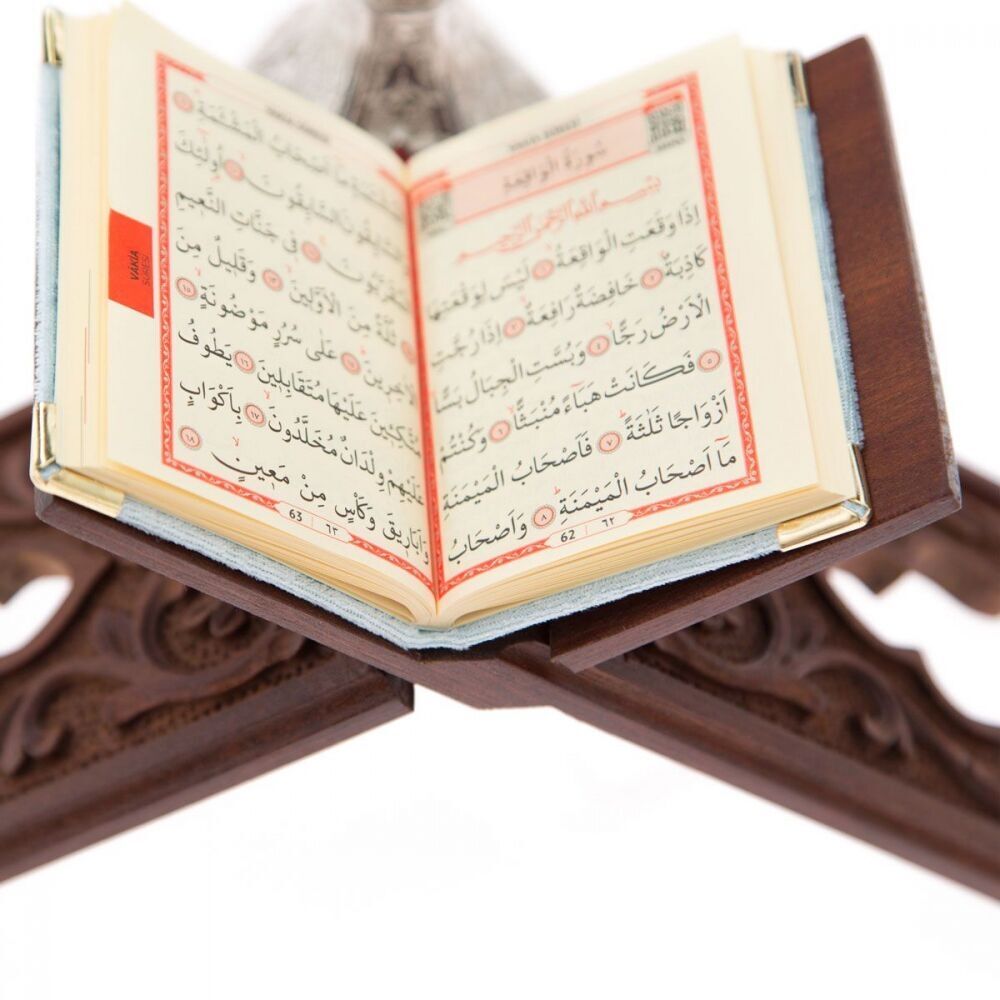 سُورَةُ الْوَاقِعَةِ
بِسْمِ اللّٰهِ الرَّحْمٰنِ الرَّحِيمِ
اِذَا وَقَعَتِ الْوَاقِعَةُ ١ لَيْسَ لِوَقْعَتِهَا
كَاذِبَةٌ ٢ خَافِضَةٌ رَافِعَةٌ ٣ اِذَا رُجَّتِ
الْاَرْضُ رَجًّا ٤ وَبُسَّتِ الْجِبَالُ بَسًّا
٥ فَكَانَتْ هَبَاءً مُنْبَثًّا ٦ وَكُنْتُمْ
اَزْوَاجًا ثَلٰثَةً ٧ فَاَصْحَابُ الْمَيْمَنَةِ
مَا اَصْحَابُ الْمَيْمَنَةِ ٨ وَاَصْحَابُ
62 | ٦٢
مَا اَصْحَابُ الْمَشْـَٔمَةِ ٩
السَّابِقُونَ ١٠ اُولٰئِكَ
الْمُقَرَّبُونَ ١١ فِي جَنَّاتِ النَّعِيمِ
١٢ ثُلَّةٌ مِنَ الْاَوَّلِينَ ١٣ وَقَلِيلٌ مِنَ
الْاٰخِرِينَ ١٤ عَلٰى سُرُرٍ مَوْضُونَةٍ ١٥
مُتَّكِـِٔينَ عَلَيْهَا مُتَقَابِلِينَ ١٦ يَطُوفُ
عَلَيْهِمْ وِلْدَانٌ مُخَلَّدُونَ ١٧ بِاَكْوَابٍ
وَاَبَارِيقَ وَكَأْسٍ مِنْ مَعِينٍ ١٨
63 | ٦٣
VÂKIA
SURESİ